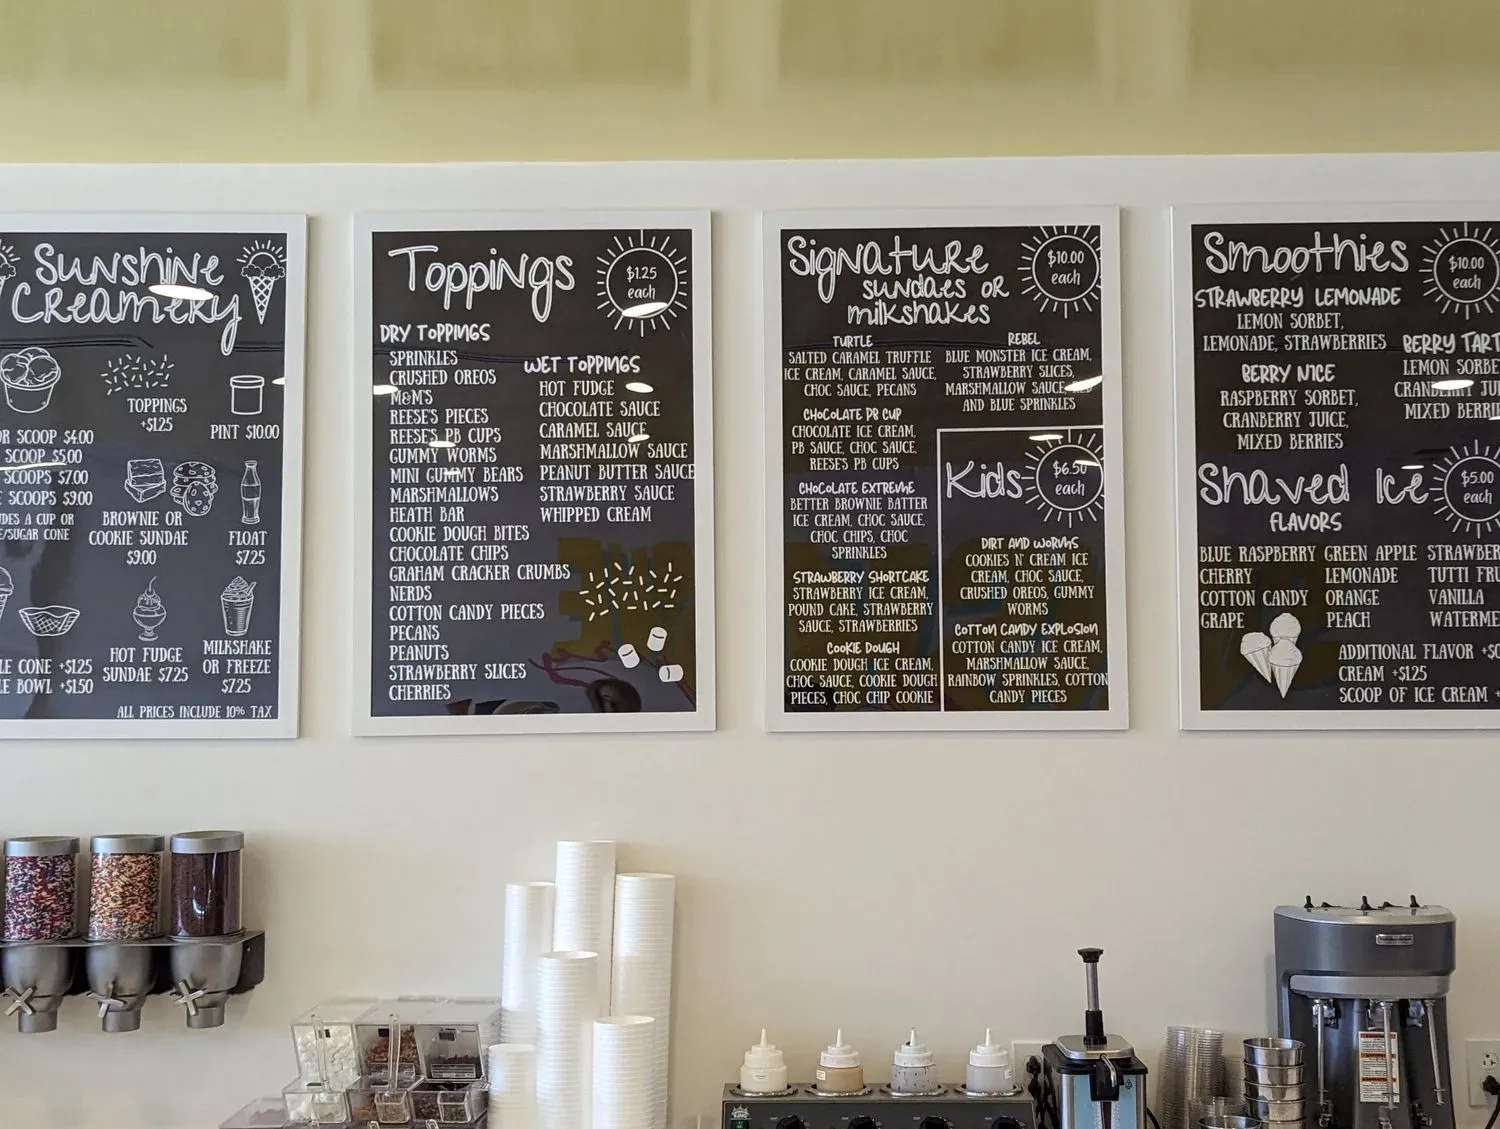 Sunshine
Creamery
TOPPINGS
+$1.25
PINT $10.00
OR SCOOP $4.00
SCOOP $5.00
SCOOPS $7.00
SCOOPS $9.00
A CUP OR
/SUGAR CONE
BROWNIE OR
COOKIE SUNDAE
$9.00
FLOAT
$7.25
CONE +$1.25
BOWL +$1.50
HOT FUDGE
SUNDAE $7.25
MILKSHAKE
OR FREEZE
$7.25
ALL PRICES INCLUDE 10% TAX
Toppings
$1.25
each
DRY TOPPINGS
SPRINKLES
CRUSHED OREOS
M&M'S
REESE'S PIECES
REESE'S PB CUPS
GUMMY WORMS
MINI GUMMY BEARS
MARSHMALLOWS
HEATH BAR
COOKIE DOUGH BITES
CHOCOLATE CHIPS
GRAHAM CRACKER CRUMBS
NERDS
COTTON CANDY PIECES
PECANS
PEANUTS
STRAWBERRY SLICES
CHERRIES
WET TOPPINGS
HOT FUDGE
CHOCOLATE SAUCE
CARAMEL SAUCE
MARSHMALLOW SAUCE
PEANUT BUTTER SAUCE
STRAWBERRY SAUCE
WHIPPED CREAM
Signature
sundaes or
milkshakes
$10.00
each
TURTLE
SALTED CARAMEL TRUFFLE
ICE CREAM, CARAMEL SAUCE,
CHOC SAUCE, PECANS
CHOCOLATE PB CUP
CHOCOLATE ICE CREAM,
PB SAUCE, CHOC SAUCE,
REESE'S PB CUPS
CHOCOLATE EXTREME
BETTER BROWNIE BATTER
ICE CREAM, CHOC SAUCE,
CHOC CHIPS, CHOC
SPRINKLES
STRAWBERRY SHORTCAKE
STRAWBERRY ICE CREAM,
POUND CAKE, STRAWBERRY
SAUCE, STRAWBERRIES
COOKIE DOUGH
COOKIE DOUGH ICE CREAM,
CHOC SAUCE, COOKIE DOUGH
PIECES, CHOC CHIP COOKIE
REBEL
BLUE MONSTER ICE CREAM,
STRAWBERRY SLICES,
MARSHMALLOW SAUCE,
AND BLUE SPRINKLES
Kids
$6.50
each
DIRT AND WORMS
COOKIES N' CREAM ICE
CREAM, CHOC SAUCE,
CRUSHED OREOS, GUMMY
WORMS
COTTON CANDY EXPLOSION
COTTON CANDY ICE CREAM,
MARSHMALLOW SAUCE,
RAINBOW SPRINKLES, COTTON
CANDY PIECES
Smoothies
$10.00
each
STRAWBERRY LEMONADE
LEMON SORBET,
LEMONADE, STRAWBERRIES
BERRY NICE
RASPBERRY SORBET,
CRANBERRY JUICE,
MIXED BERRIES
BERRY TART
LEMON SORBE
CRANBERRY JUI
MIXED BERRIE
Shaved Ice
FLAVORS
$5.00
each
BLUE RASPBERRY GREEN APPLE STRAWBER
CHERRY LEMONADE TUTTI FRU
COTTON CANDY ORANGE VANILLA
GRAPE PEACH WATERME
ADDITIONAL FLAVOR
CREAM +$1.25
SCOOP OF ICE CREAM +